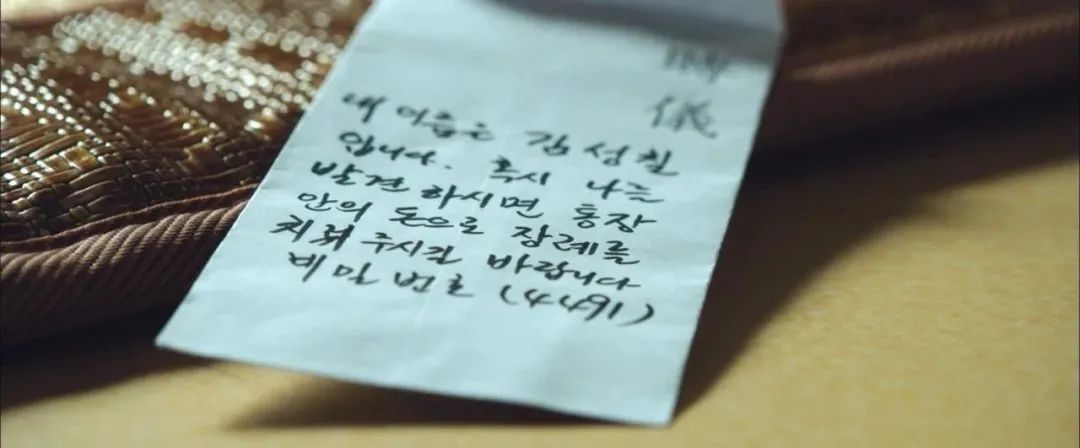 儀
내 이름은 김성칠
입니다. 혹시 나를
발견하시면 통장
안의 돈으로 장례를
치뤄 주시길 바랍니다
비밀번호 (4491)